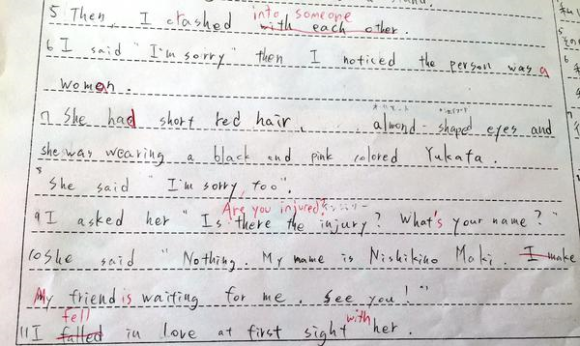 5 Then, I crashed into someone with each other.
6 I said "I'm sorry" then I noticed the person was a
woman.
7 She had short red hair, almond-shaped eyes and
she was wearing a black and pink colored Yukata.
8
She said "I'm sorry, too".
Are you injured?
9 I asked her "Is there the injury? What's your name?"
10 She said "Nothing. My name is Nishikino Maki. I make
My friend is waiting for me. See you!"
11 I falled fell in love at first sight with her.